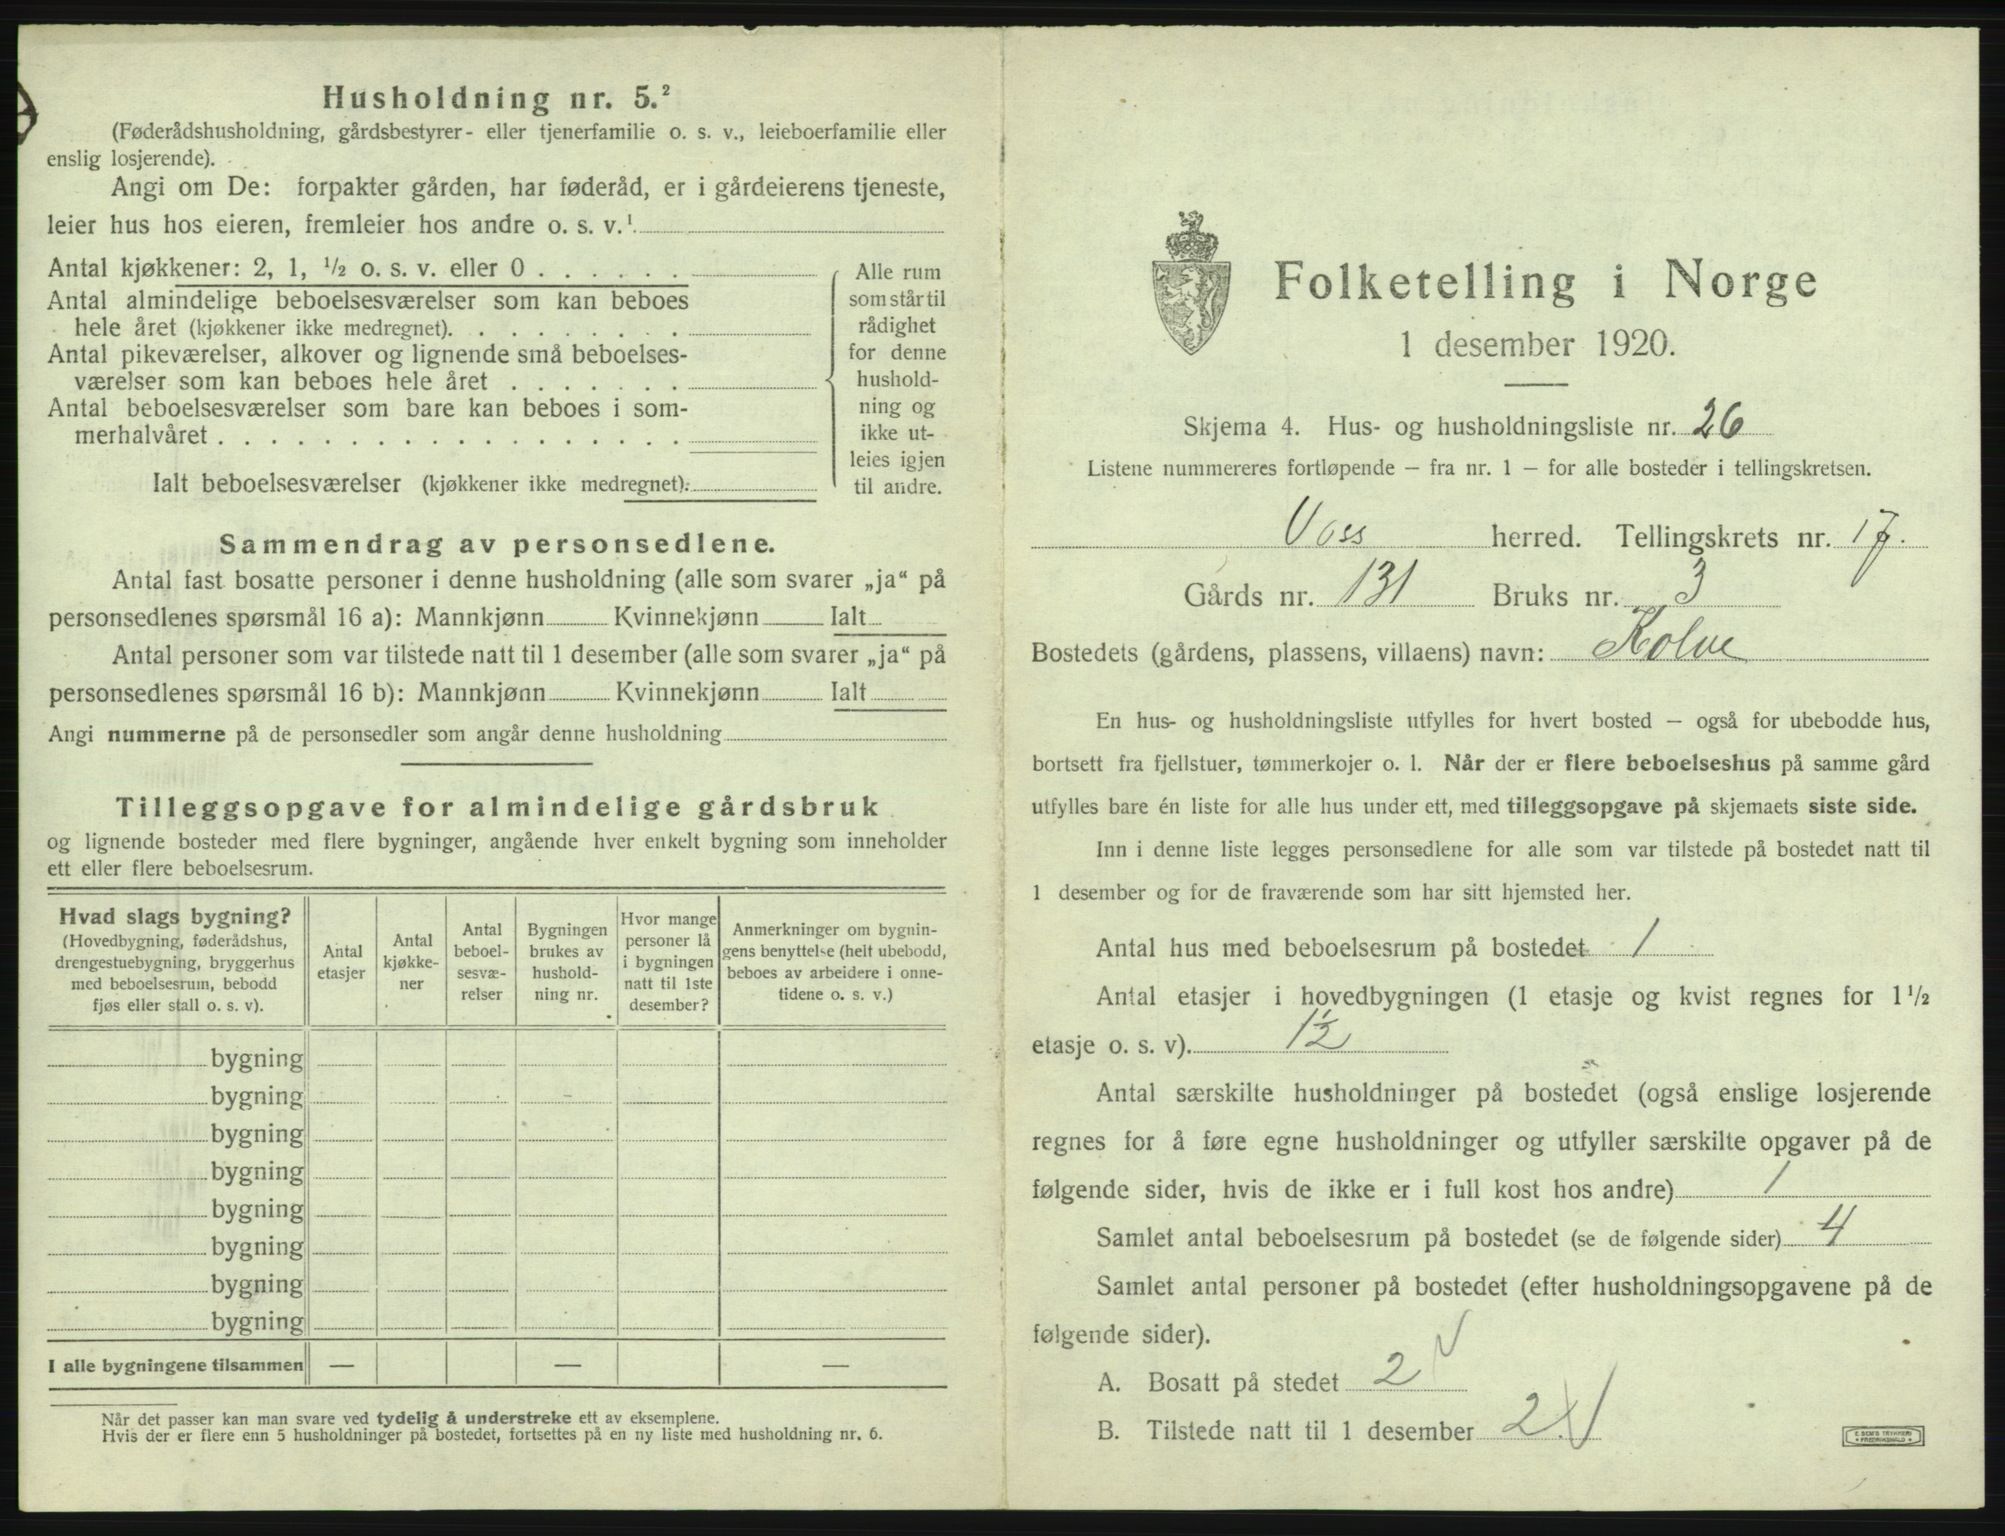 Husholdning nr. 5.²
(Føderådshusholdning, gårdsbestyrer- eller tjenerfamilie o. s. v., leieboerfamilie eller
enslig losjerende).
Angi om De: forpakter gården, har føderåd, er i gårdeierens tjeneste,
leier hus hos eieren, fremleier hos andre o. s. v.¹
Antal kjøkkener: 2, 1, ½ o. s. v. eller 0 . . . . . .
Antal almindelige beboelsesværelser som kan beboes
hele året (kjøkkener ikke medregnet). . . . . . . . .
Antal pikeværelser, alkover og lignende små beboelses-
værelser som kan beboes hele året . . . . . . .
Antal beboelsesværelser som bare kan beboes i som-
merhalvåret . . . . . . . . . . . . . . . . . .
Ialt beboelsesværelser (kjøkkener ikke medregnet).
Alle rum
som står til
rådighet
for denne
hushold-
ning og
ikke ut-
leies igjen
til andre.
Sammendrag av personsedlene.
Antal fast bosatte personer i denne husholdning (alle som svarer „ja“ på
personsedlenes spørsmål 16 a): Mannkjønn Kvinnekjønn Ialt
Antal personer som var tilstede natt til 1 desember (alle som svarer „ja“ på
personsedlenes spørsmål 16 b): Mannkjønn Kvinnekjønn Ialt
Angi nummerne på de personsedler som angår denne husholdning
Tilleggsopgave for almindelige gårdsbruk
og lignende bosteder med flere bygninger, angående hver enkelt bygning som inneholder
ett eller flere beboelsesrum.
Hvad slags bygning?
(Hovedbygning, føderådshus,
drengestuebygning, bryggerhus
med beboelsesrum, bebodd
fjøs eller stall o. s. v).
Antal
etasjer
Antal
kjøkke-
ner
Antal
beboel-
sesvæ-
relser
Bygningen
brukes av
hushold-
ning nr.
Hvor mange
personer lå
i bygningen
natt til 1ste
desember?
Anmerkninger om bygnin-
gens benyttelse (helt ubebodd,
beboes av arbeidere i onne-
tidene o. s. v.)
bygning
bygning
bygning
bygning
bygning
bygning
bygning
bygning
I alle bygningene tilsammen — — —
Når det passer kan man svare ved tydelig å understreke ett av eksemplene.
Hvis der er flere enn 5 husholdninger på bostedet, fortsettes på en ny liste med husholdning nr. 6.
Folketelling i Norge
1 desember 1920.
Skjema 4. Hus- og husholdningsliste nr. 26
Listene nummereres fortløpende – fra nr. 1 – for alle bosteder i tellingskretsen.
Voss herred. Tellingskrets nr. 17.
Gårds nr. 131 Bruks nr. 3
Bostedets (gårdens, plassens, villaens) navn: Kolve
En hus- og husholdningsliste utfylles for hvert bosted – også for ubebodde hus,
bortsett fra fjellstuer, tømmerkojer o. l. Når der er flere beboelseshus på samme gård
utfylles bare én liste for alle hus under ett, med tilleggsopgave på skjemaets siste side.
Inn i denne liste legges personsedlene for alle som var tilstede på bostedet natt til
1 desember og for de fraværende som har sitt hjemsted her.
Antal hus med beboelsesrum på bostedet 1
Antal etasjer i hovedbygningen (1 etasje og kvist regnes for 1½
etasje o. s. v). 1½
Antal særskilte husholdninger på bostedet (også enslige losjerende
regnes for å føre egne husholdninger og utfyller særskilte opgaver på de
følgende sider, hvis de ikke er i full kost hos andre) 1
Samlet antal beboelsesrum på bostedet (se de følgende sider) 4
Samlet antal personer på bostedet (efter husholdningsopgavene på de
følgende sider).
A. Bosatt på stedet 2
B. Tilstede natt til 1 desember 2
E. SEM'S TRYKKERI
FREDRIKSHALD